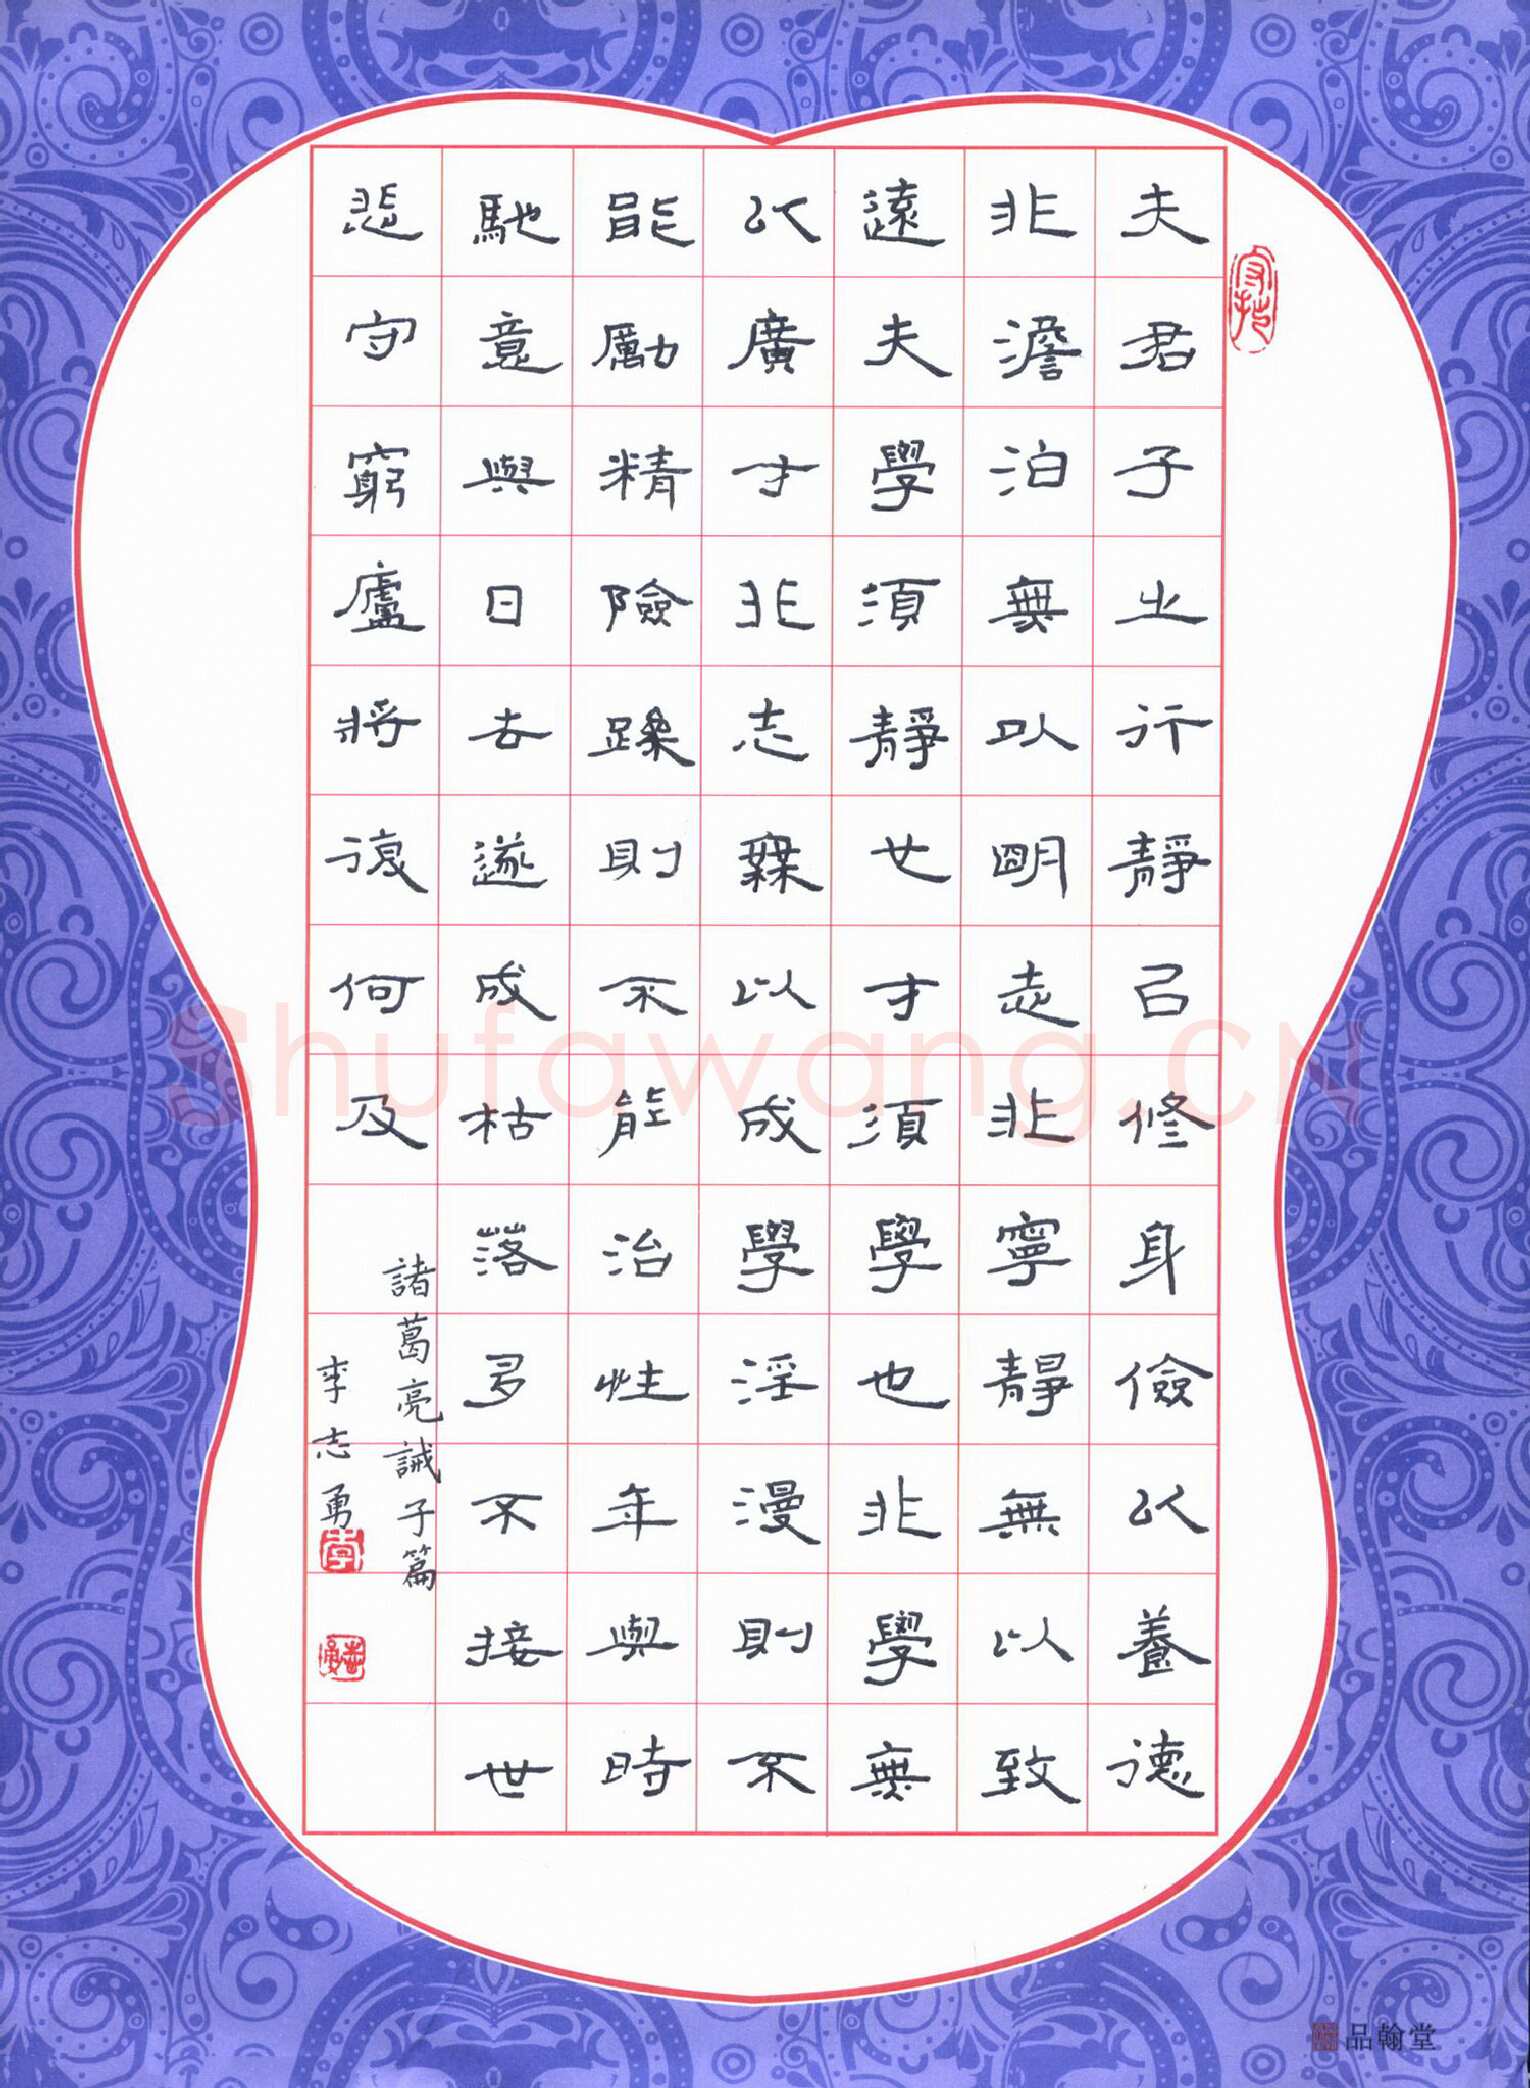 夫君子之行靜㠯修身儉以養德
非澹泊無以明志非寧靜無以致
遠夫學須靜也才須學也非學無
以廣才非志無以成學淫漫則不
能勵精險躁則不能治性年與時
馳意與日去遂成枯落多不接世
悲守窮廬將復何及
諸葛亮誡子篇
李志勇
守拙
李
志勇
品翰堂
Shufawang.CN